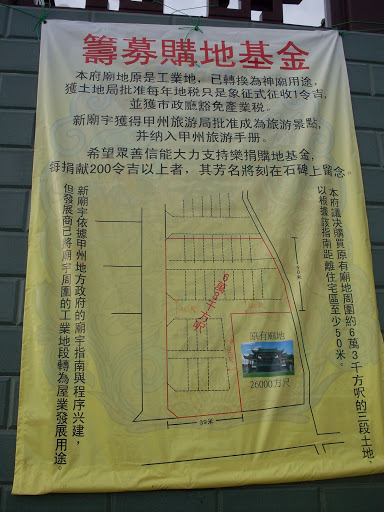 籌募購地基金
本府廟地原是工業地，已轉換為神廟用途，
獲土地局批准每年地税只是象征式征收1令吉，
並獲市政廳豁免產業税。
新廟宇獲得甲州旅游局批准成為旅游景點，
并纳入甲州旅游手册。
希望眾善信能大力支持樂捐購地基金，
每捐献200令吉以上者，其芳名將刻在石碑上留念。
本府議决購買原有廟地周圍約6萬3千方呎的二段土地，
以根據該指南距離住宅區至少50米。
新廟宇依據甲州地方政府的廟宇指南與程序兴建，
但發展商已將廟宇周圍的工業地段轉為屋業發展用途。
6萬3千方呎
50米
原有廟地
26000方尺
39米